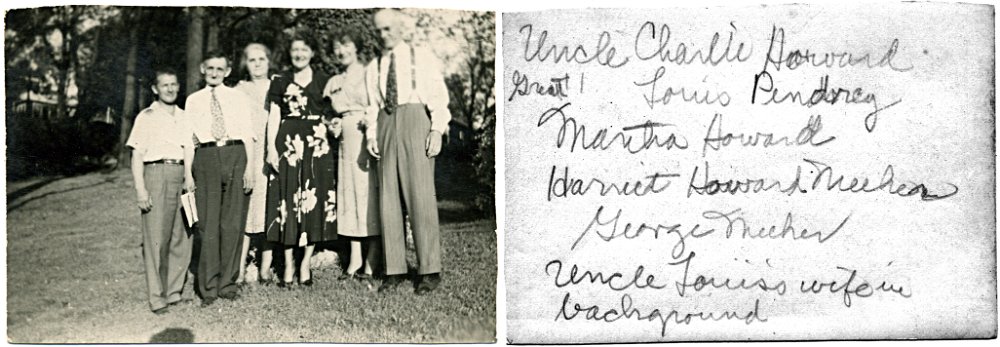 Uncle Charlie Howard
Great! Louis Pendrey
Martha Howard
Harriet Howard Meeker
George Meeker
Uncle Louis's wife in
background